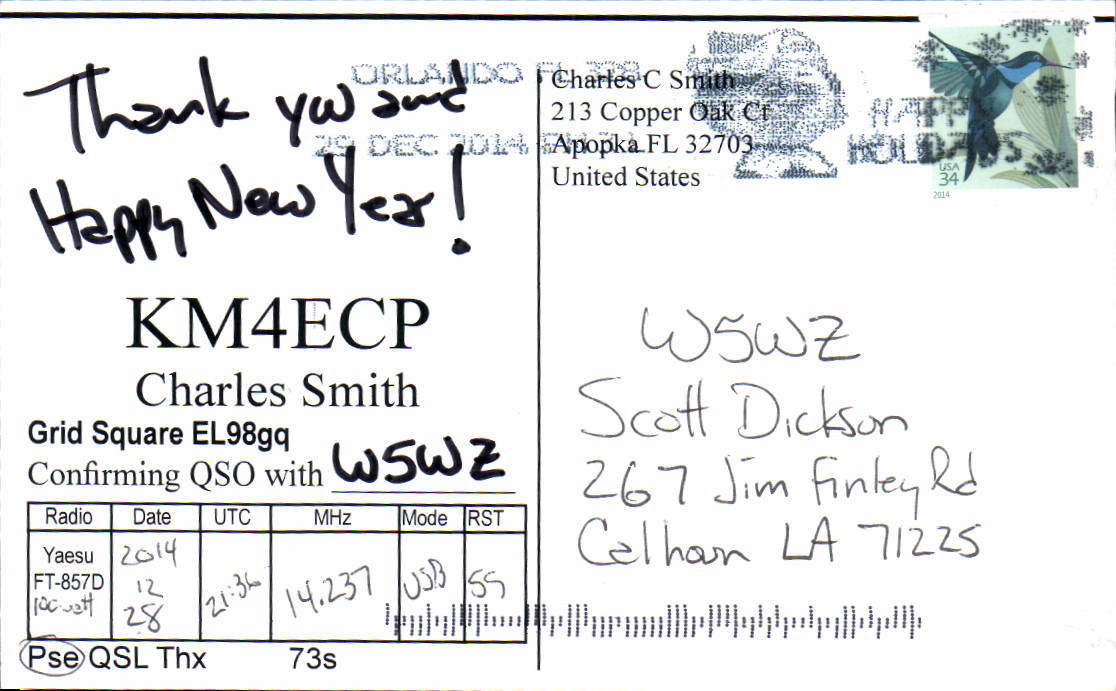 Thank you and
Happy New Year!
KM4ECP
Charles Smith
Grid Square EL98gq
Confirming QSO with W5WZ
Radio Date UTC MHz Mode RST
Yaesu
FT-857D
100 watt
2014
12
28
21:36
14.237
USB
59
Pse QSL Thx 73s
ORLANDO FL 328
29 DEC 2014
Charles C Smith
213 Copper Oak Ct
Apopka FL 32703
United States
HAPPY
HOLIDAYS
USA
34
2014
W5WZ
Scott Dickson
267 Jim Finley Rd
Calhoun LA 71225